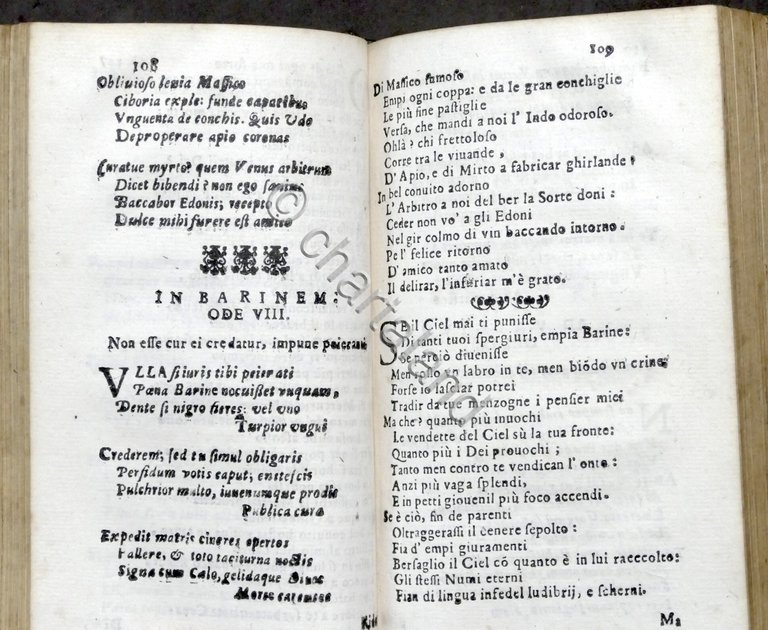 108
Obliuioso leuia Massico
Ciboria exple: funde capacibus
Vnguenta de conchis. Quis Vdo
Deproperare apio coronas
Curatue myrto? quem Venus arbitrum
Dicet bibendi? non ego sanius
Baccabor Edonis; recepto
Dulce mihi furere est amico
IN BARINEM.
ODE VIII.
Non esse cur ei credatur, impune peierante
VLLA si iuris tibi peierati
Pœna Barine nocuisset vnquam,
Dente si nigro fieres: vel vno
Turpior vngui
Crederem; sed tu simul obligasti
Perfidum votis caput; enitescis
Pulchrior multo, iuuenumque prodis
Publica cura
Expedit matris cineres opertos
Fallere, & toto taciturna noctis
Signa cum Cælo, gelidaque Diuos
Morte carentes
109
Di Massico fumoso
Empi ogni coppa: e da le gran conchiglie
Le più fine pastiglie
Versa, che mandi a noi l'Indo odoroso.
Ohlà? chi frettoloso
Corre tra le viuande,
D'Apio, e di Mirto a fabricar ghirlande?
In bel conuito adorno
L'Arbitro a noi del ber la Sorte doni:
Ceder non vo' a gli Edoni
Nel gir colmo di vin baccando intorno.
Pel' felice ritorno
D'amico tanto amato
Il delirar, l'infuriar m'è grato.
SE il Ciel mai ti punisse
Di tanti tuoi spergiuri, empia Barine:
Se perciò diuenisse
Men rosso vn labro in te, men biōdo vn crine;
Forse io lasciar potrei
Tradir da tue menzogne i pensier miei
Ma che? quanto più inuochi
Le vendette del Ciel sù la tua fronte:
Quanto più i Dei prouochi;
Tanto men contro te vendican l'onte:
Anzi più vaga splendi,
E in petti giouenil più foco accendi.
Se è ciò, fin de parenti
Oltraggerassi il cenere sepolto:
Fia d'empi giuramenti
Bersaglio il Ciel cō quanto è in lui raccolto:
Gli stessi Numi eterni
Fian di lingua infedel ludibrij, e scherni.
Ma
© chartaland